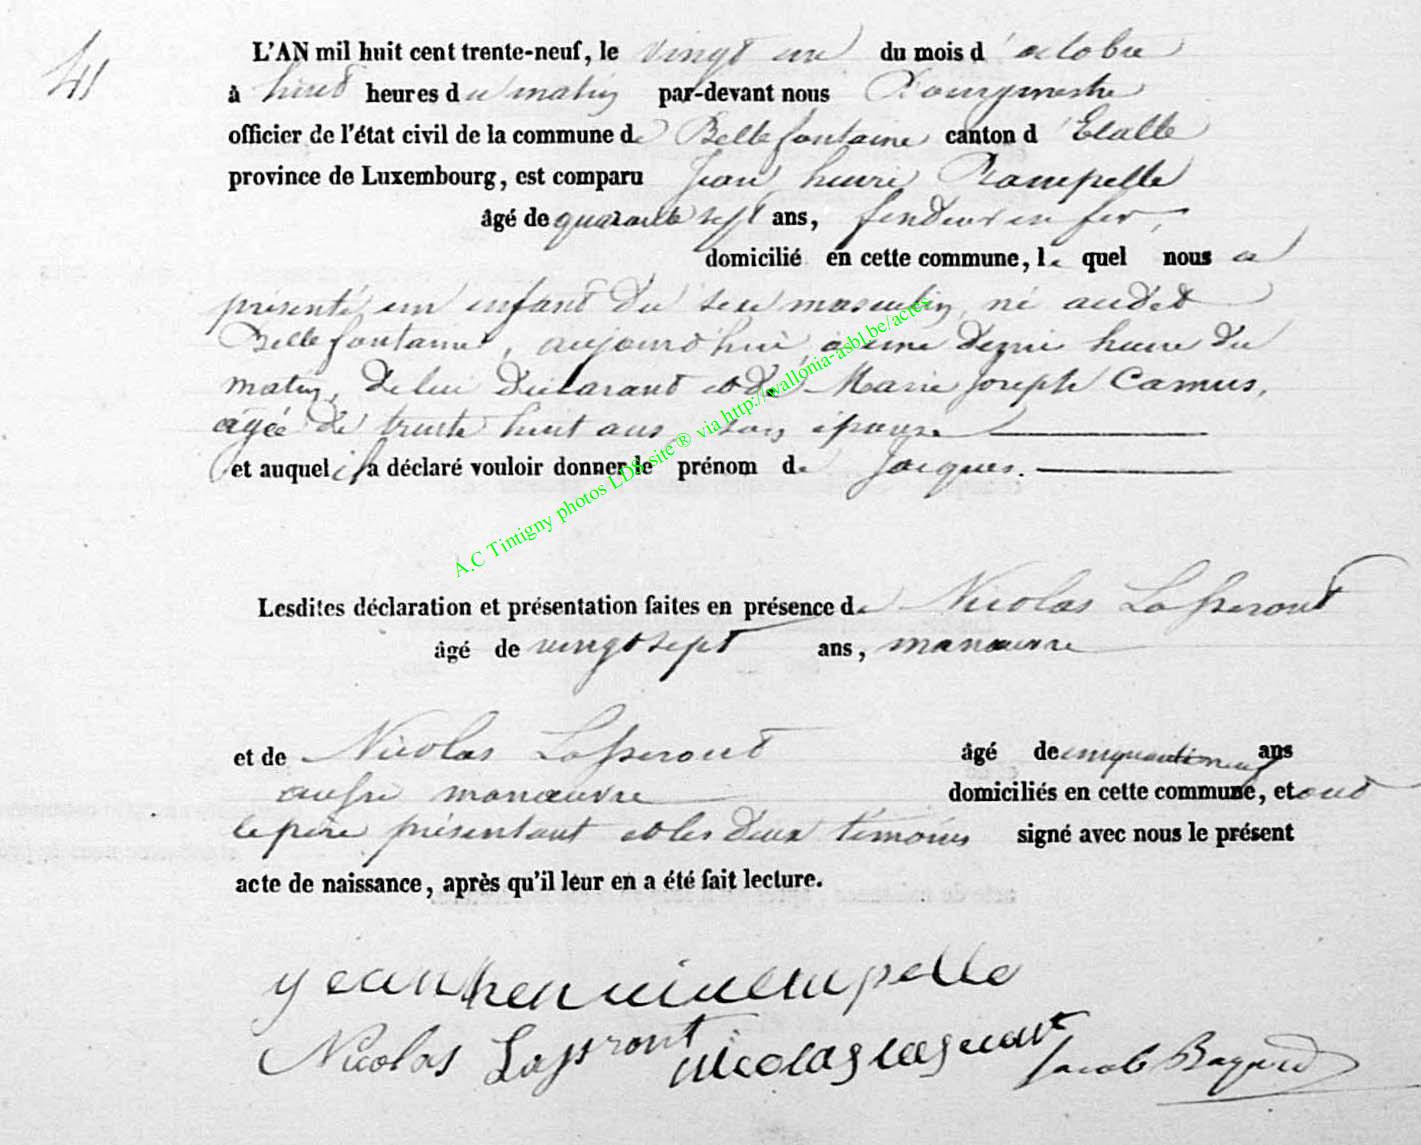 41
L'AN mil huit cent trente-neuf, le vingt un du mois d'octobre
à huit heures du matin par-devant nous Bourgmestre
officier de l'état civil de la commune de Bellefontaine canton d'Etalle
province de Luxembourg, est comparu Jean henri Rampelle
âgé de quarante sept ans, fendeur en fer,
domicilié en cette commune, le quel nous a
présenté un enfant du sexe masculin, né audit
Bellefontaine, aujourd'hui à une demi heure du
matin, de lui Déclarant et de Marie Joseph Camus,
agée de trente huit ans, son épouse
et auquel il a déclaré vouloir donner le prénom de Jacques.
A.C Tintigny photos LDS site ® via http://wallonia-asbl.be/actes
Lesdites déclaration et présentation faites en présence de Nicolas Lasseront
âgé de vingt sept ans, manœuvre
et de Nicolas Lasseront âgé de cinquante neuf ans
aussi manœuvre domiciliés en cette commune, et ont
le père présentant et les deux témoins signé avec nous le présent
acte de naissance, après qu'il leur en a été fait lecture.
Nicolas Nicolas Jacob Bayard